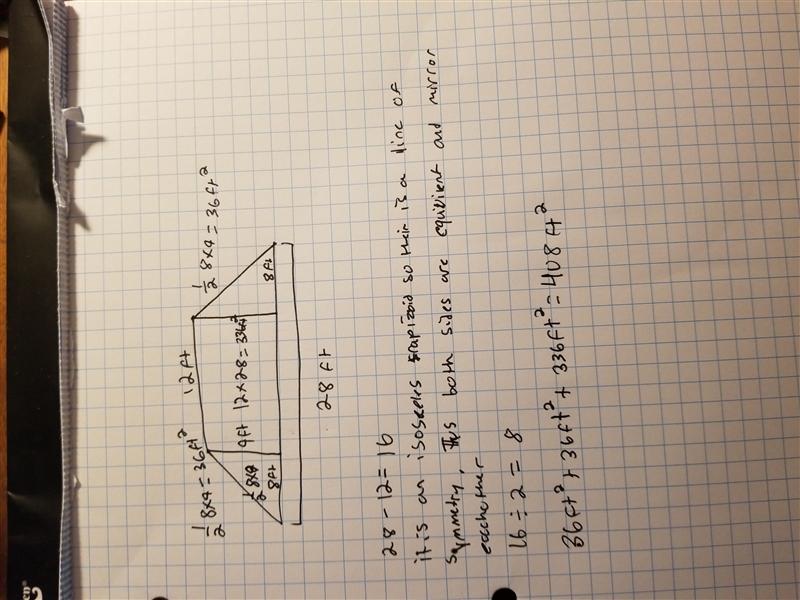 1/2 8x9 = 36ft²
12 ft
1/2 8x9 = 36ft²
1/2 8x9
8ft
9ft
12 x 28 = 336ft²
8ft
28 ft
28 - 12 = 16
it is an isosceles trapizoid so thier is a line of
symmetry, Thus both sides are equivilent and mirror
eachother
16 ÷ 2 = 8
36ft² + 36ft² + 336ft² = 408ft²